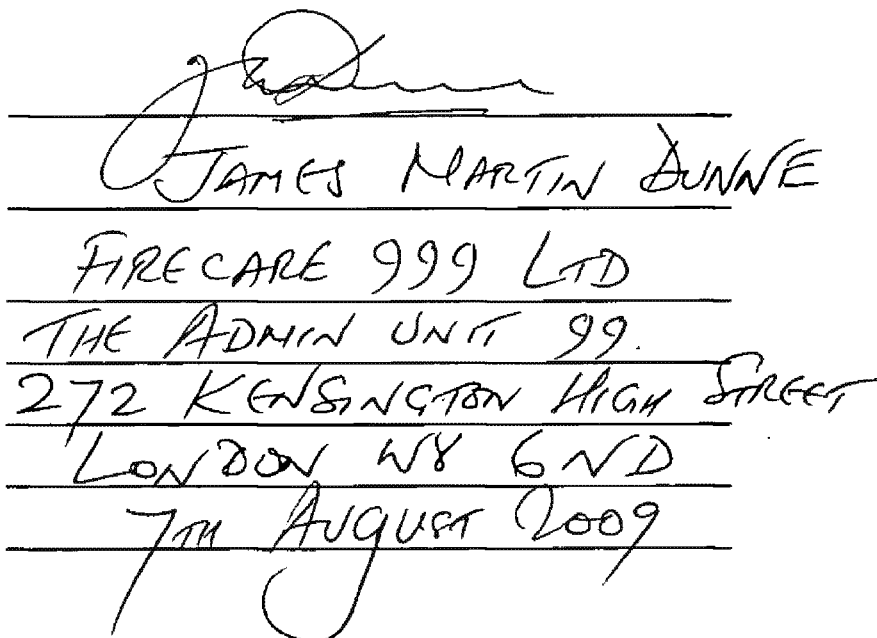 JAMES MARTIN DUNNE
FIRECARE 999 LTD
THE ADMIN UNIT 99.
272 KENSINGTON HIGH STREET
LONDON W8 6ND
7TH AUGUST 2009